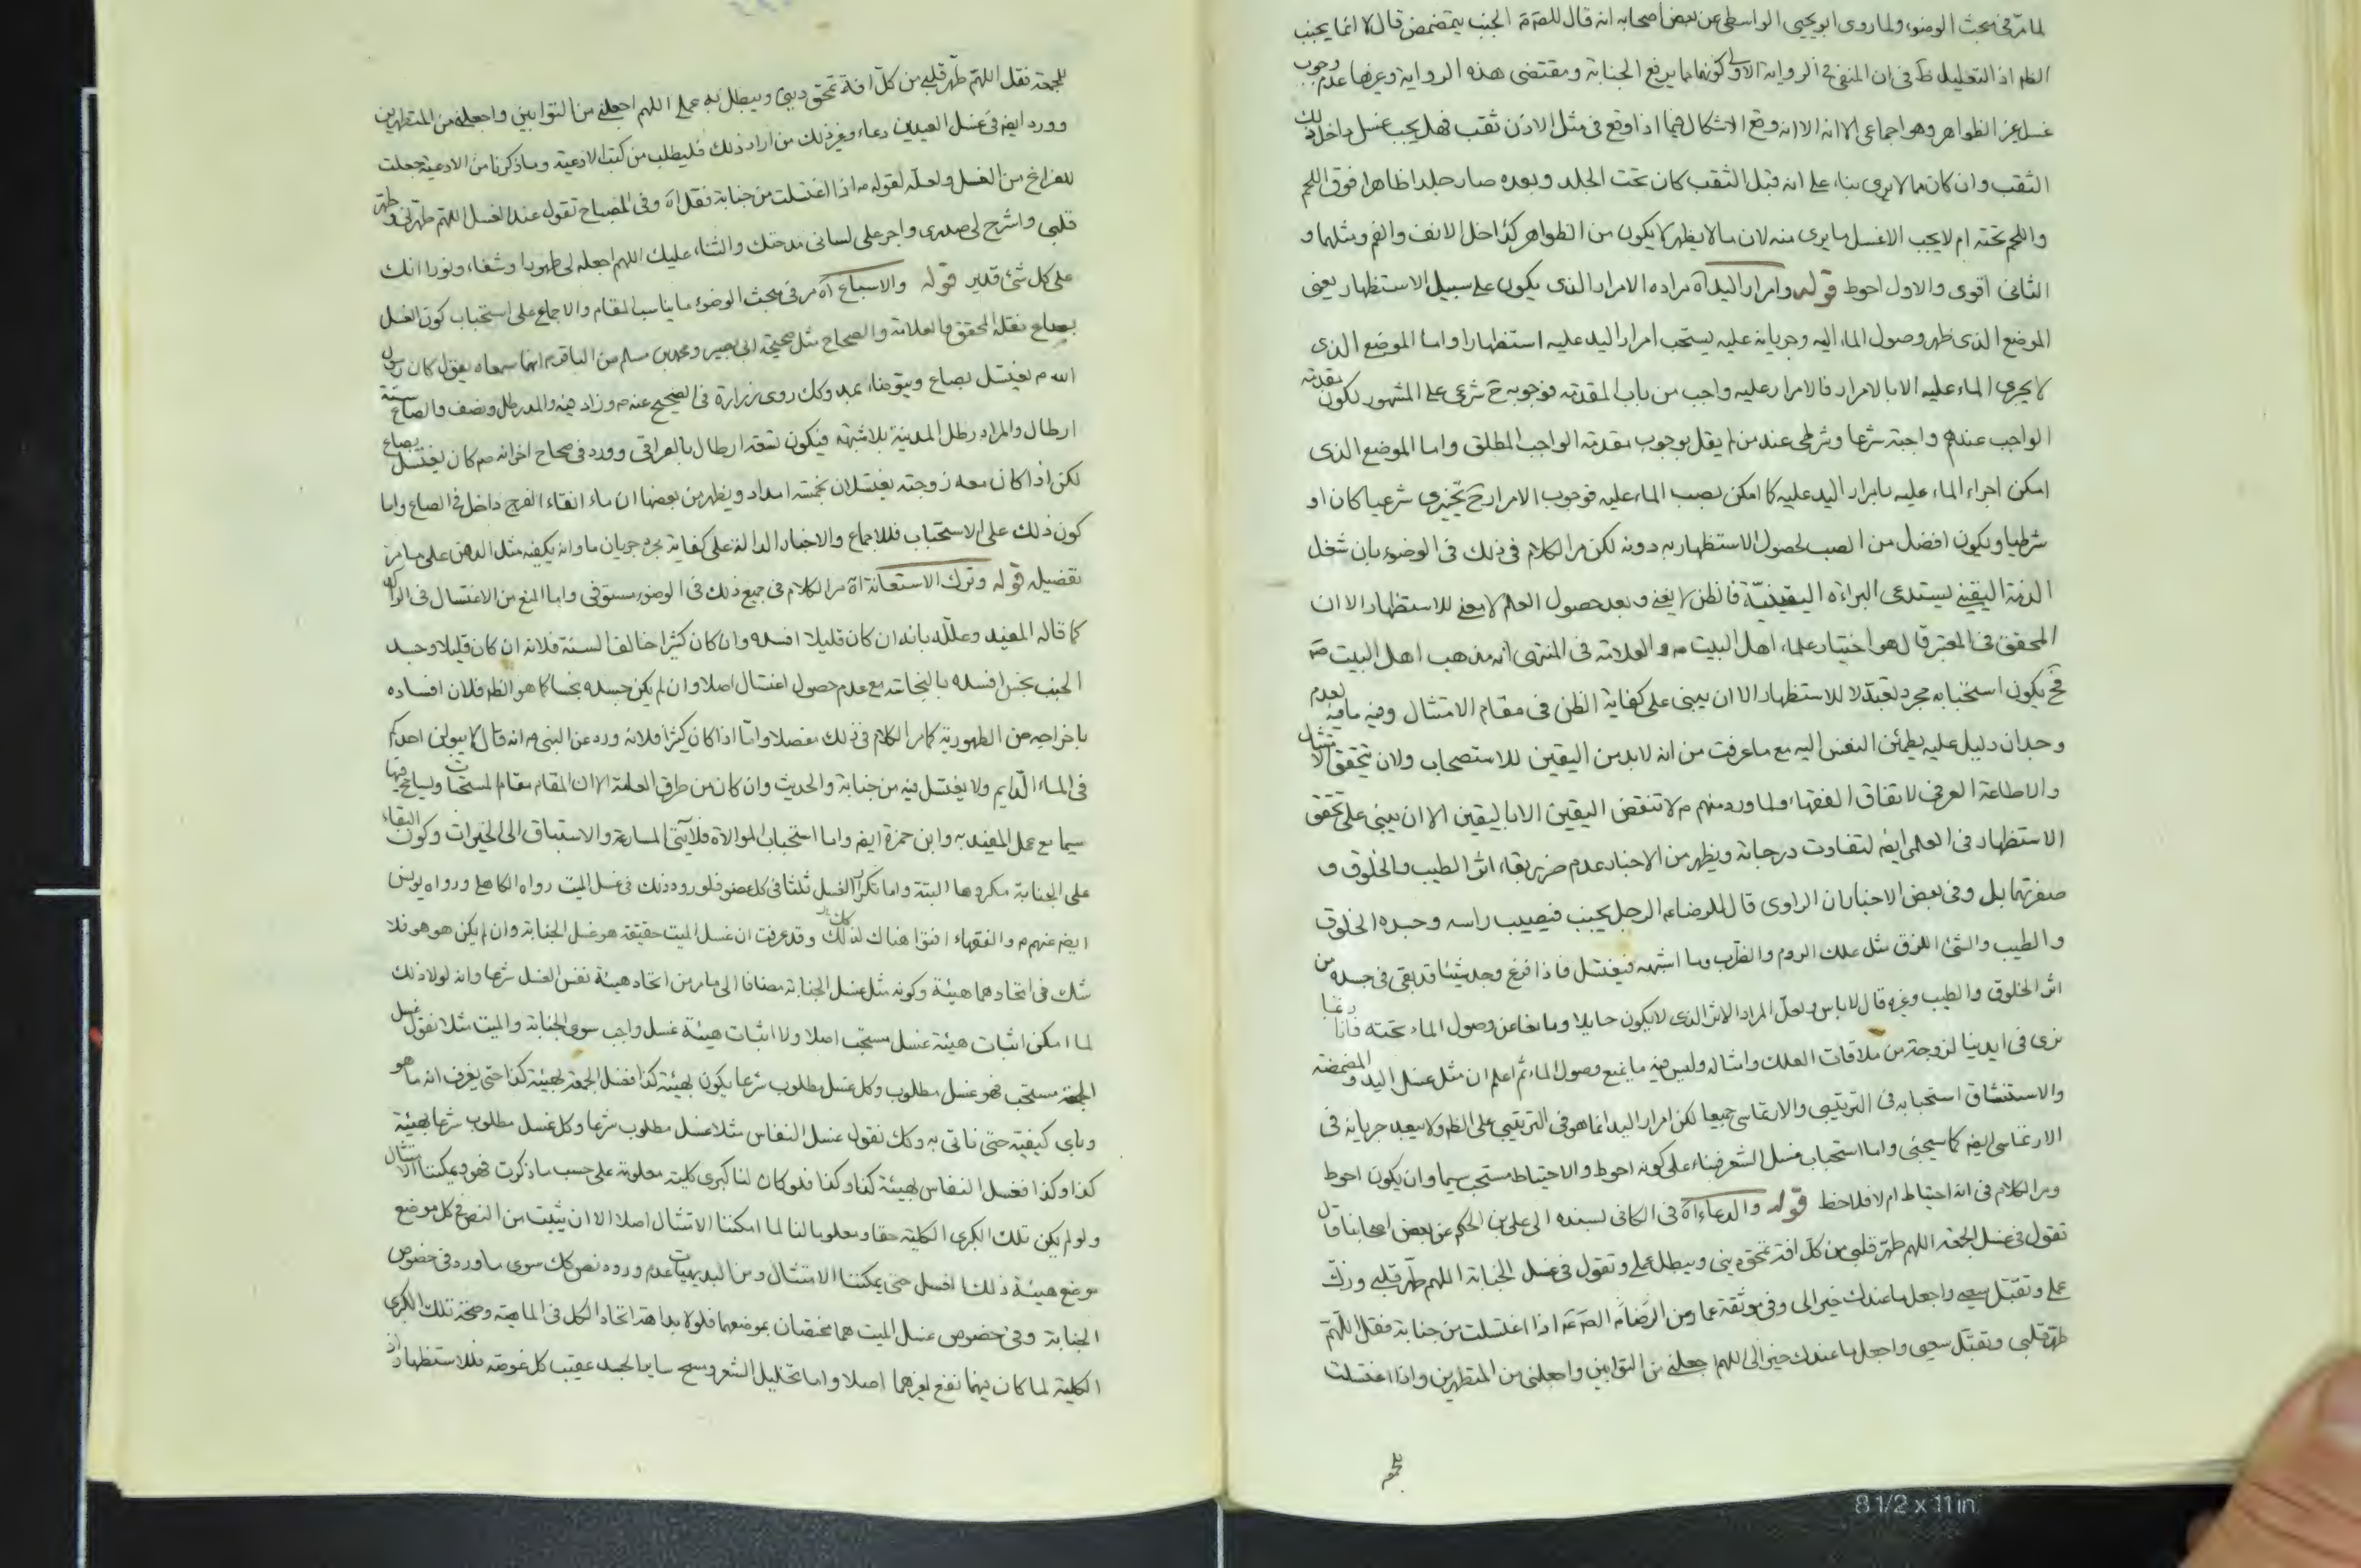 لما مر فى مبحث الوضوء ولما روى ابو يحيى الواسطى عن بعض اصحابه انه قال للصّ ع الجنب يتمضمض قال لا انما يجنب
الظ اذ التعليل ظ فى ان المنفى فى الرواية الاولى كونهما مما يرفع الجنابة ومقتضى هذه الرواية وغيرها عدم وجوب
غسل غير الظواهر وهو اجماعى الا انه وقع الاشكال فيما اذا وقع فى مثل الاذن ثقب فهل يجب غسل داخل ذلك
الثقب وان كان مما لا يرى بناء على انه قبل الثقب كان تحت الجلد وبعده صار جلدا ظاهرا فوق اللحم
واللحم تحته ام لا يجب الا غسل ما يرى منه لان ما لا يظهر لا يكون من الظواهر كداخل الانف والفم ومثلهما و
الثانى اقوى والاول احوط قوله وامرار اليد آه مراده الامرار الذى يكون على سبيل الاستظهار يعنى
الموضع الذى ظهر وصول الماء اليه وجريانه عليه يستحب امرار اليد عليه استظهارا واما الموضع الذى
لا يجرى الماء عليه الا بالامرار فالامرار عليه واجب من باب المقدمة فوجوبه ح شرعى على المشهور لكون مقدمة
الواجب عندهم واجبة شرعا وشرطى عند من لم يقل بوجوب مقدمة الواجب المطلق واما الموضع الذى
امكن اجراء الماء عليه بامرار اليد عليه كما امكن بصب الماء عليه فوجوب الامرار ح تخييرى شرعيا كان او
شرطيا ويكون افضل من الصب لحصول الاستظهار به دونه لكن مر الكلام فى ذلك فى الوضوء بان شغل
الذمة اليقينى يستدعى البراءة اليقينيّة فالظن لا يغنى وبعد حصول العلم لا معنى للاستظهار الا ان
المحقق فى المعتبر قال هو اختيار علماء اهل البيت ع والعلامة فى المنتهى انه مذهب اهل البيت ع
فح يكون استحبابه مجرد تعبد لا للاستظهار الا ان يبنى على كفاية الظن فى مقام الامتثال وفيه ما فيه لعدم
وجدان دليل عليه يطمئن النفس اليه مع ما عرفت من انه لا بد من اليقين للاستصحاب ولان تحقق الامتثال
والاطاعة العرفى لاتفاق الفقهاء ولما ورد منهم ع لا تنقض اليقين الا باليقين الا ان يبنى على تحقق
الاستظهار فى العلمى ايضا لتفاوت درجاته ويظهر من الاخبار عدم ضرر بقاء اثر الطيب والخلوق و
صفرتهما بل وفى بعض الاخبار ان الراوى قال للرضا ع الرجل يجنب فيصيب راسه وجسده الخلوق
والطيب والشئ اللزق مثل علك الروم والطرب وما اشبهه فيغتسل فاذا فرغ وجد شيئا قد بقى فى جسده من
اثر الخلوق والطيب وغيره قال لا باس ولعل المراد الاثر الذى لا يكون حايلا ومانعا عن وصول الماء تحته فانا ربما
نرى فى ايدينا لزوجة من ملاقات العلك وامثاله وليس فيه ما يمنع وصول الماء ثم اعلم ان مثل غسل اليد والمضمضة
والاستنشاق استحبابه فى الترتيبى والارتماسى جميعا لكن امرار اليد انما هو فى الترتيبى على الظ ولا يبعد جريانه فى
الارتماسى ايضا كما سيجئ واما استحباب غسل الشعر فبناء على كونه احوط والاحتياط مستحب سيما وان يكون احوط
ومر الكلام فى انه احتياط ام لا فلاحظ قوله والدعاء آه فى الكافى بسنده الى على بن الحكم عن بعض اصحابنا قال
تقول فى غسل الجمعة اللهم طهّر قلبى من كل افة تمحق دينى وتبطل عملى وتقول فى غسل الجنابة اللهم طهّر قلبى وزك
عملى وتقبّل سعيى واجعل ما عندك خيرا لى وفى موثقة عمار عن الصّ ع اذا اغتسلت من جنابة فقل اللّهمّ
طهّر قلبى وتقبّل سعيى واجعل ما عندك خيرا لى اللهم اجعلنى من التوابين واجعلنى من المتطهرين واذا اغتسلت
للجمعة فقل اللهمّ طهّر قلبى من كلّ افة تمحق دينى ويبطل به عملى اللهم اجعلنى من التوابين واجعلنى من المتطهرين
وورد ايضا فى غسل العيدين دعاء وغير ذلك من اراد ذلك فليطلب من كتب الادعية وما ذكرنا من الادعية جعلت
للفراغ من الغسل ولعلّه لقوله ع اذا اغتسلت من جنابة فقل آه وفى المصباح تقول عند الغسل اللهمّ طهّرنى وطهّر
قلبى واشرح لى صدرى واجر على لسانى مدحتك والثناء عليك اللهم اجعله لى طهورا وشفاء ونورا انك
على كل شئ قدير قوله والاسباغ آه مر فى مبحث الوضوء ما يناسب المقام والاجماع على استحباب كون الغسل
بصاع نقله المحقق والعلامة والصحاح مثل صحيحة ابى بصير ومحمد بن مسلم عن الباقر ع انهما سمعاه يقول كان رسول
الله ص يغتسل بصاع ويتوضأ بمد وكك روى زرارة فى الصحيح عنه ع وزاد فيه والمد رطل ونصف والصاع ستة
ارطال والمراد رطل المدينة بلا شبهة فيكون تسعة ارطال بالعراقى وورد فى صحاح اخر انه ص كان يغتسل بصاع
لكن اذا كان معه زوجته يغتسلان بخمسة امداد ويظهر من بعضها ان ماء انقاء الفرج داخل فى الصاع واما
كون ذلك على الاستحباب فللاجماع والاخبار الدالة على كفاية مجرد جريان ماء وانه يكفيه مثل الدهن على ما مر
تفصيله قوله وترك الاستعانة آه مر الكلام فى جميع ذلك فى الوضوء مستوفى واما المنع من الاغتسال فى الراكد
كما قاله المفيد وعلله بانه ان كان قليلا افسده وان كان كثيرا خالف السنة فلانه ان كان قليلا وجسد
الجنب نجس افسده بالنجاسة مع عدم حصول اغتسال اصلا وان لم يكن جسده نجسا كما هو الظ فلان افساده
باخراجه من الطهورية كما مر الكلام فى ذلك مفصلا وامّا اذا كان كثيرا فلانه ورد عن النبى ص انه قال لا يبولن احدكم
فى الماء الدّايم ولا يغتسل فيه من جنابة والحديث وان كان من طرق العامة الا ان المقام مقام المستحبات ويسامح فيها
سيما مع عمل المفيد به وابن حمزة ايضا واما استحباب الموالاة فلآيتى المسارعة والاستباق الى الخيرات وكون البقاء
على الجنابة مكروها البتة واما تكرار الغسل ثلثا فى كل عضو فلورود ذلك فى غسل الميت رواه الكاهلى ورواه يونس
ايضا عنهم ع والفقهاء افتوا هناك كذلك وقد عرفت ان غسل الميت حقيقة هو غسل الجنابة وان لم يكن هو هو فلا
شك فى اتحادهما هيئة وكونه مثل غسل الجنابة مضافا الى ما مر من اتحاد هيئة نفس الغسل شرعا وانه لولا ذلك
لما امكن اثبات هيئة غسل مستحب اصلا ولا اثبات هيئة غسل واجب سوى الجنابة والميت مثلا نقول غسل
الجمعة مستحب فهو غسل مطلوب وكل غسل مطلوب شرعا يكون بهيئة كذا فغسل الجمعة بهيئة كذا حتى يعرف انه ما هو
وباى كيفية حتى ناتى به وكك نقول غسل النفاس مثلا غسل مطلوب شرعا وكل غسل مطلوب شرعا بهيئة
كذا وكذا فغسل النفاس بهيئة كذا وكذا فلو كان لنا كبرى كلية معلومة على حسب ما ذكرت فهو ويمكننا الامتثال
ولو لم يكن تلك الكبرى الكلية حقا ومعلوما لنا لما امكننا الامتثال اصلا الا ان يثبت من النص فى كل موضع
موضع هيئة ذلك الغسل حتى يمكننا الامتثال ومن البديهيات عدم ورود نص كك سوى ما ورد فى خصوص
الجنابة وفى خصوص غسل الميت هما مختصان بموضعهما فلولا بداهة اتحاد الكل فى الماهية وصحة تلك الكبرى
الكلية لما كان فيهما نفع لغيرهما اصلا واما تخليل الشعر ومسح ساير الجسد عقيب كل غوصة فللاستظهار اذ
للجمعة
8 1/2 x 11 in.